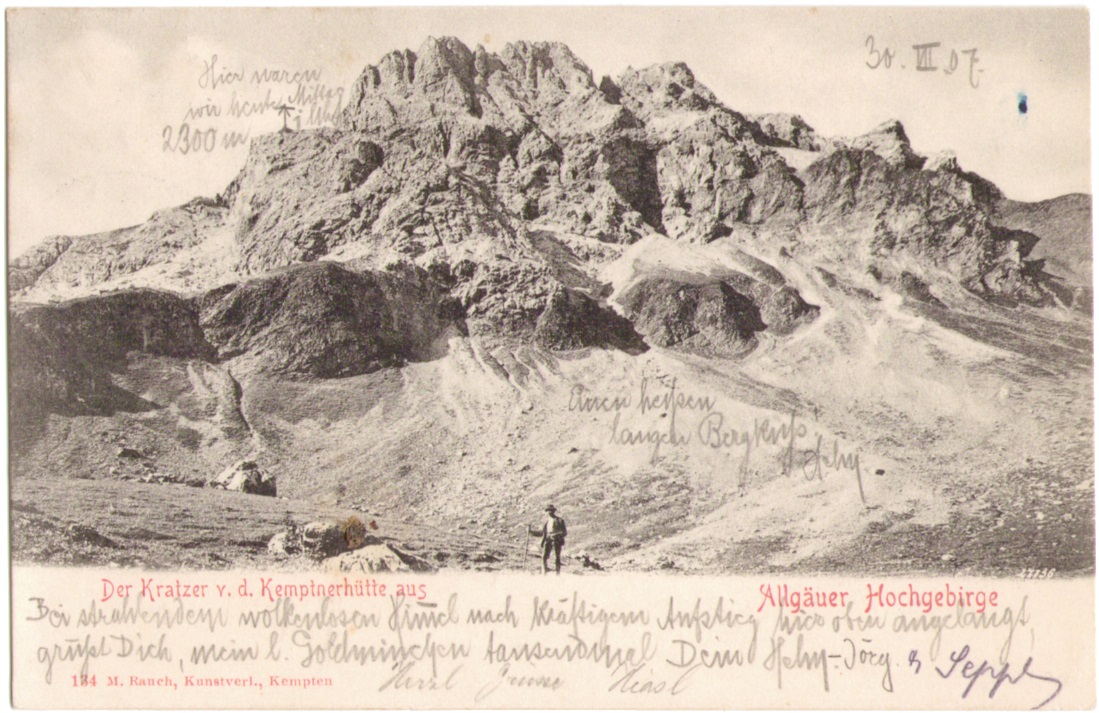 Hier waren
wir heute Mittag
1 Uhr
2300 m
30. VII. 07.
Einen heißen
langen Bergkuß
27736
Der Kratzer v. d. Kemptnerhütte aus
Allgäuer Hochgebirge
Bei strahlendem wolkenlosen Himmel nach kräftigem Aufstieg hier oben angelangt,
grüßt Dich, mein l. Goldminchen tausendmal Dein
134 M. Rauch, Kunstverl., Kempten
Herzl Grüsse Hiasl
Seppl